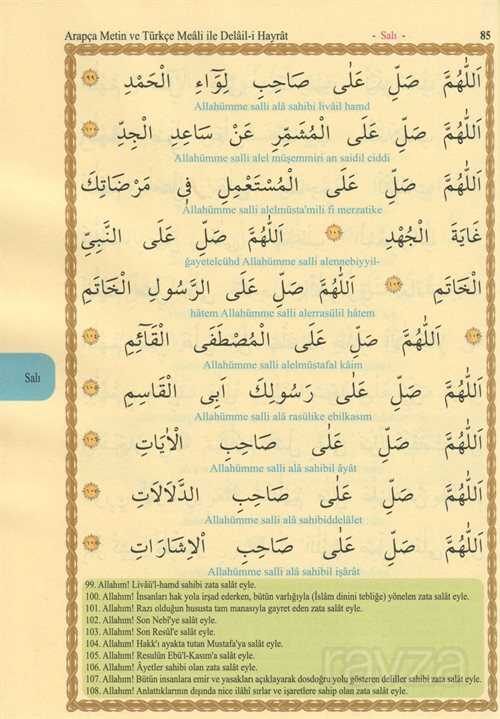 Arapça Metin ve Türkçe Meâli ile Delâil-i Hayrât - Salı - 85
اَللّٰهُمَّ صَلِّ عَلٰى صَاحِبِ لِوَٓاءِ الْحَمْدِ ٩٩
Allahümme salli alâ sahibi livâil hamd
اَللّٰهُمَّ صَلِّ عَلَى الْمُشَمِّرِ عَنْ سَاعِدِ الْجِدِّ
Allahümme salli alel müşemmiri an saidil ciddi
اَللّٰهُمَّ صَلِّ عَلَى الْمُسْتَعْمِلِ فِى مَرْضَاتِكَ
Allahümme salli alelmüsta'mili fi merzatike
غَايَةَ الْجُهْدِ اَللّٰهُمَّ صَلِّ عَلَى النَّبِىِّ
ğayetelcühd Allahümme salli alennebiyyil-
الْخَاتَمِ اَللّٰهُمَّ صَلِّ عَلَى الرَّسُولِ الْخَاتَمِ
hâtem Allahümme salli alerrasülil hâtem
اَللّٰهُمَّ صَلِّ عَلَى الْمُصْطَفَى الْقَٓائِمِ
Allahümme salli alelmüstafal kâim
اَللّٰهُمَّ صَلِّ عَلٰى رَسُولِكَ اَبِى الْقَاسِمِ
Allahümme salli alâ rasülike ebilkasım
اَللّٰهُمَّ صَلِّ عَلٰى صَاحِبِ الْاٰيَاتِ
Allahümme salli alâ sahibil âyât
اَللّٰهُمَّ صَلِّ عَلٰى صَاحِبِ الدَّلَالَاتِ
Allahümme salli alâ sahibiddelâlet
اَللّٰهُمَّ صَلِّ عَلٰى صَاحِبِ الْاِشَارَاتِ
Allahümme salli alâ sahibil işârât
Salı
99. Allahım! Livâü'l-hamd sahibi zata salât eyle.
100. Allahım! İnsanları hak yola irşad ederken, bütün varlığıyla (İslâm dinini tebliğe) yönelen zata salât eyle.
101. Allahım! Razı olduğun hususta tam manasıyla gayret eden zata salât eyle.
102. Allahım! Son Nebî'ye salât eyle.
103. Allahım! Son Resûl'e salât eyle.
104. Allahım! Hakk'ı ayakta tutan Mustafa'ya salât eyle.
105. Allahım! Resulün Ebü'l-Kasım'a salât eyle.
106. Allahım! Âyetler sahibi olan zata salât eyle.
107. Allahım! Bütün insanlara emir ve yasakları açıklayarak dosdoğru yolu gösteren deliller sahibi zata salât eyle.
108. Allahım! Anlattıklarının dışında nice ilâhî sırlar ve işaretlere sahip olan zata salât eyle.